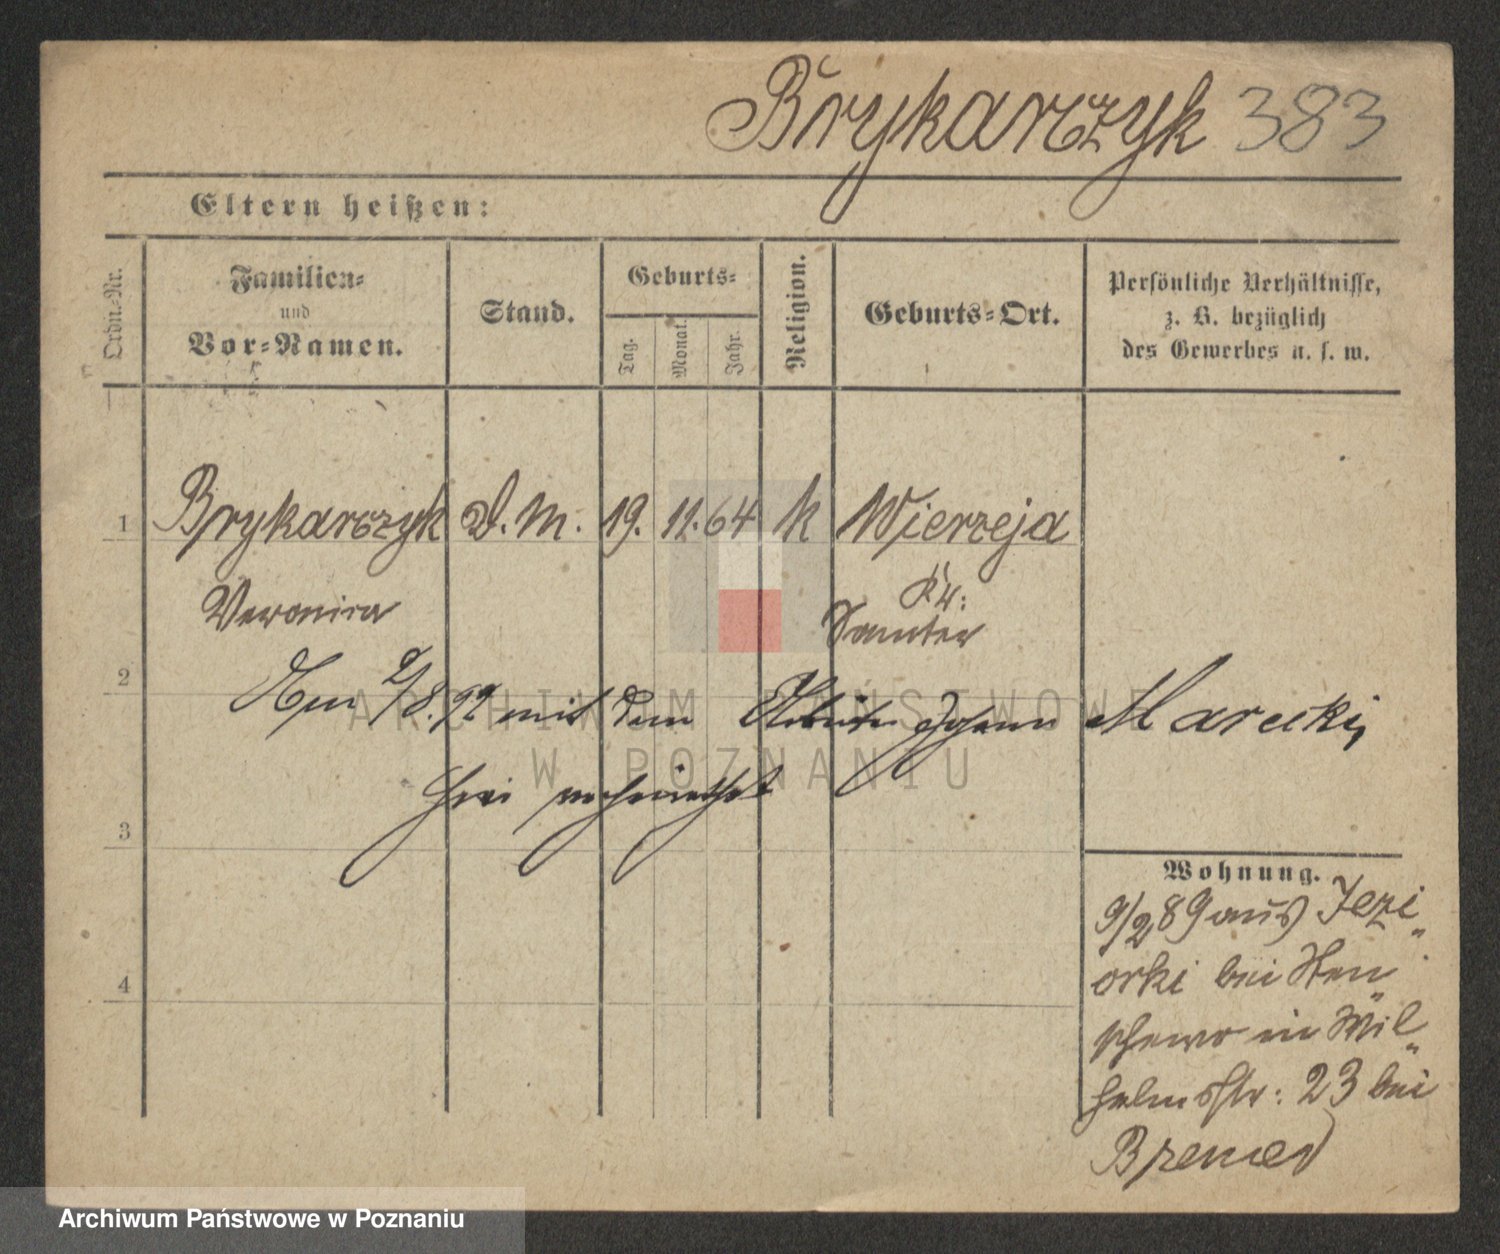 Brykarczyk 383
Eltern heißen:
Ordn.-Nr.
Familien-
und
Vor-Namen.
Stand.
Geburts-
Tag.
Monat.
Jahr.
Religion.
Geburts-Ort.
Persönliche Verhältnisse,
z. B. bezüglich
des Gewerbes u. s. w.
1 Brykarczyk D. M. 19. 11. 64 k Wierzeja
Veronica Kr:
Samter
2
Am 2/8. 92 mit dem Arbeiter Johann Marecki,
hier verheirathet
3
Wohnung.
9/2 89 aus Jezi„
orki bei Sten„
schewo in Wil„
helmsstr: 23 bei
4
ARCHIWUM PAŃSTWOWE
W POZNANIU
Archiwum Państwowe w Poznaniu